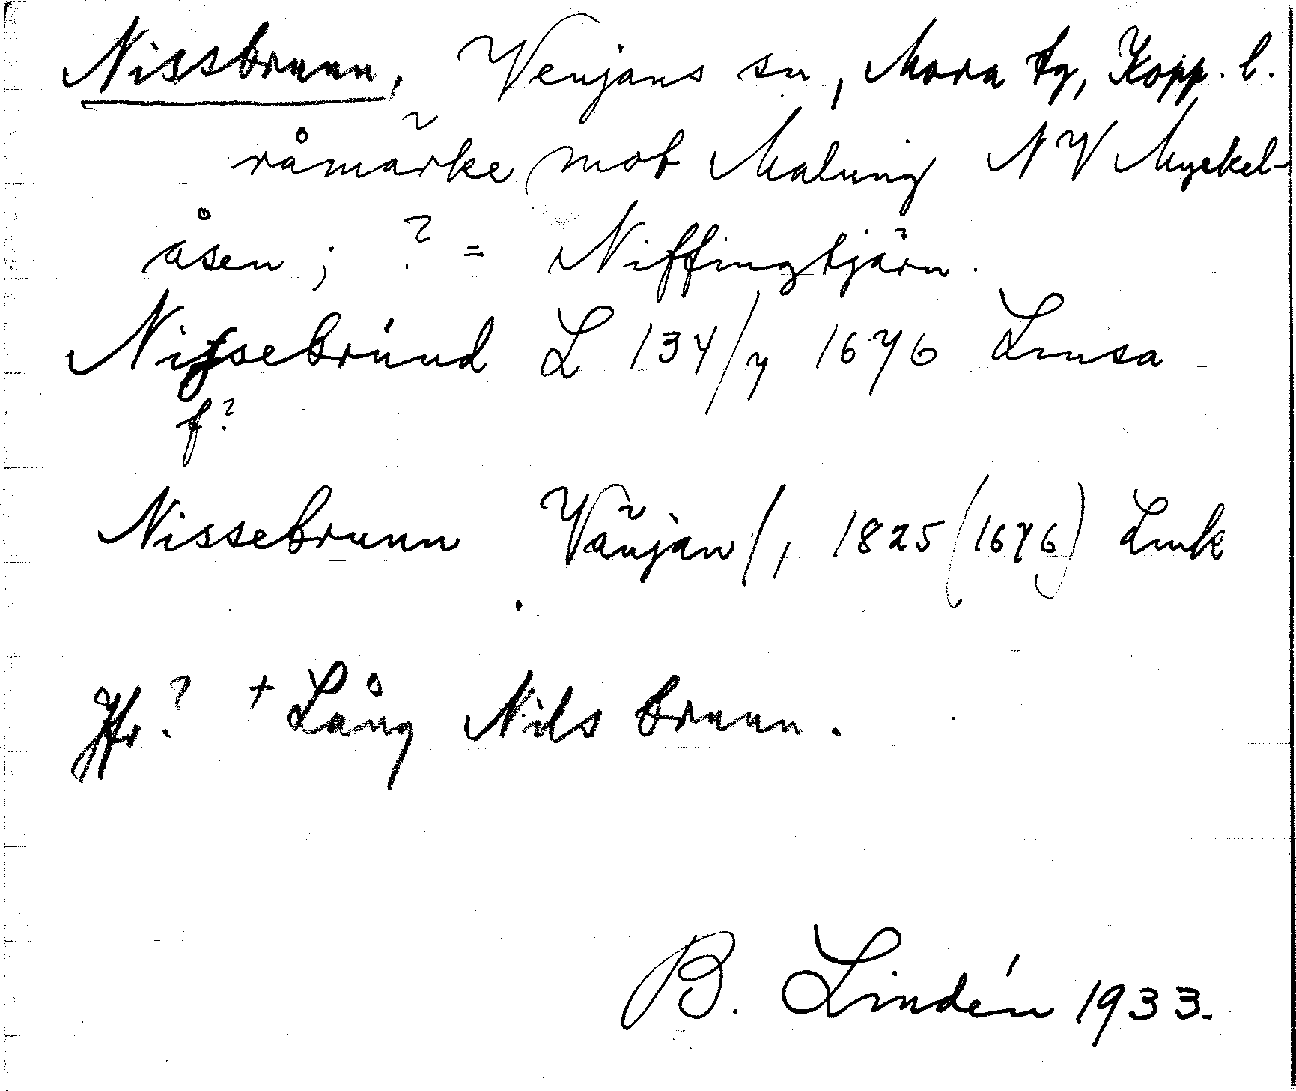 Nissbrunn, Venjans sn, Mora tg, Kopp. l.
råmärke mot Malung NV Myckel-
åsen; ? = Niffingtjärn.
Nissebrund L 134/7 1676 Lmsa
f?
Nissebrunn Vänjan /, 1825 (1676) Lmk
Jfr? + Lång Nils brunn.
B. Lindén 1933.